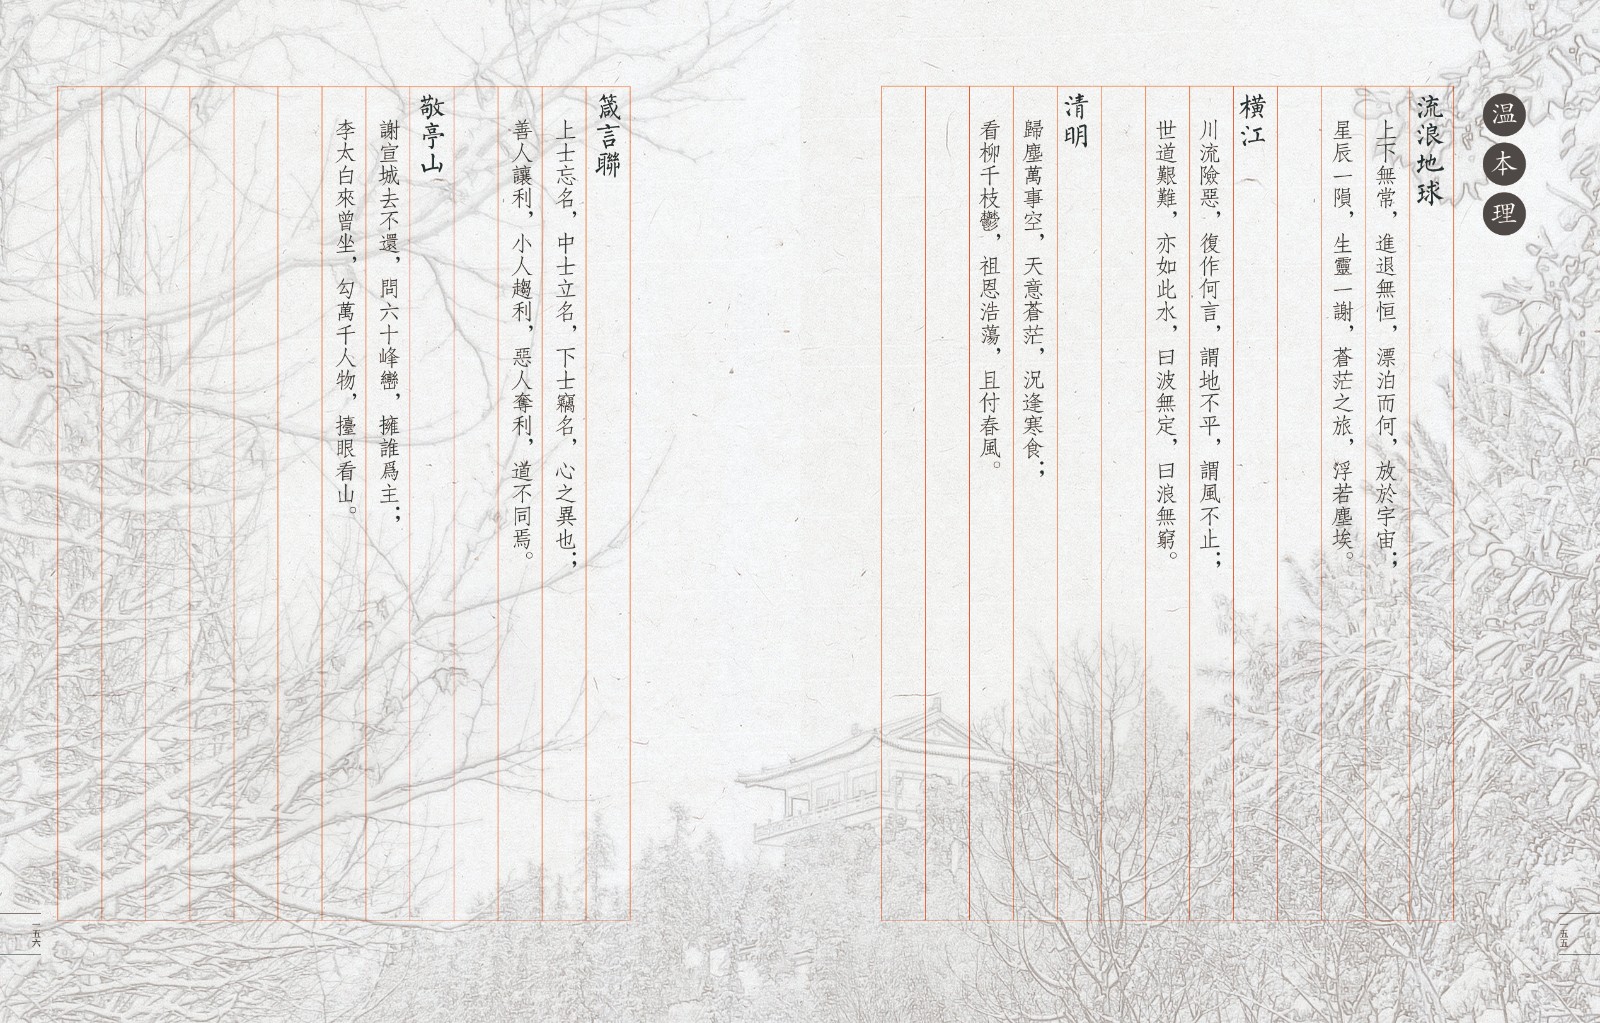 温本理
流浪地球
上下無常，進退無恒，漂泊而何，放於宇宙；
星辰一隕，生靈一謝，蒼茫之旅，浮若塵埃。
橫江
川流險惡，復作何言，謂地不平，謂風不止；
世道艱難，亦如此水，曰波無定，曰浪無窮。
清明
歸塵萬事空，天意蒼茫，況逢寒食；
看柳千枝鬱，祖恩浩蕩，且付春風。
一五五
箴言聯
上士忘名，中士立名，下士竊名，心之異也；
善人讓利，小人趨利，惡人奪利，道不同焉。
敬亭山
謝宣城去不還，問六十峰巒，擁誰爲主；
李太白來曾坐，勾萬千人物，擡眼看山。
一五六